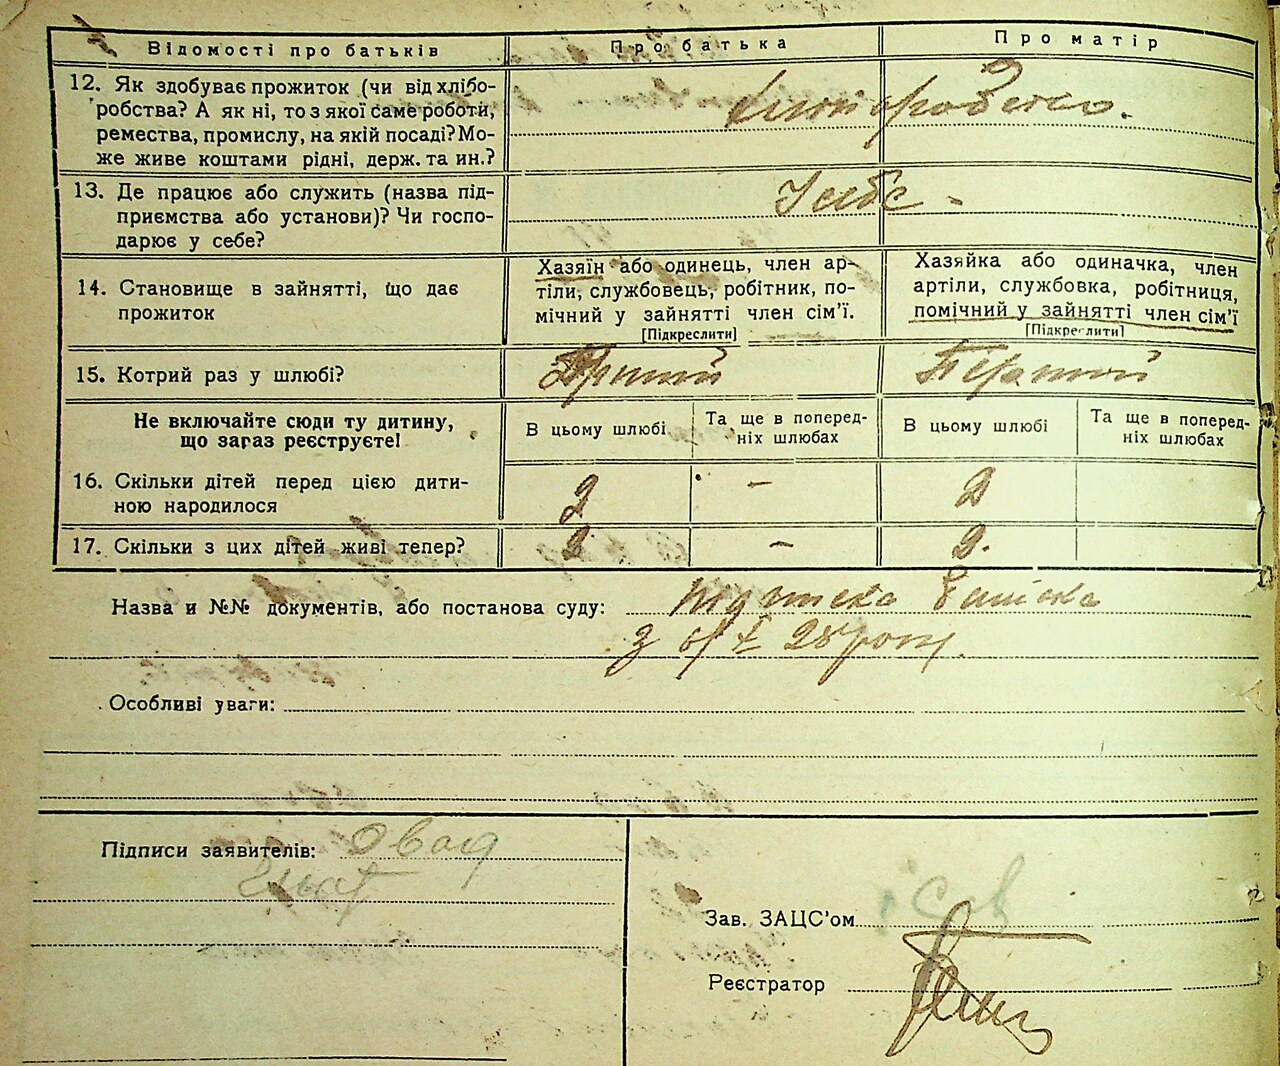 Відомості про батьків
Про батька
Про матір
12. Як здобуває прожиток (чи від хлібо-
робства? А як ні, то з якої саме роботи,
ремества, промислу, на якій посаді? Мо-
же живе коштами рідні, держ. та ин.?
13. Де працює або служить (назва під-
приємства або установи)? Чи госпо-
дарює у себе?
У себе -
14. Становище в зайнятті, що дає
прожиток
Хазяїн або одинець, член ар-
тіли, службовець, робітник, по-
мічний у зайнятті член сім'ї.
[Підкреслити]
Хазяйка або одиначка, член
артіли, службовка, робітниця,
помічний у зайнятті член сім'ї
[Підкреслити]
15. Котрий раз у шлюбі?
Другий
Первий
Не включайте сюди ту дитину,
що зараз реєструєте!
В цьому шлюбі
Та ще в поперед-
ніх шлюбах
В цьому шлюбі
Та ще в поперед-
ніх шлюбах
16. Скільки дітей перед цією дити-
ною народилося
2
-
2
17. Скільки з цих дітей живі тепер?
2
-
2.
Назва и №№ документів, або постанова суду:
підписка батька
28 року
Особливі уваги:
Підписи заявителів:
Зав. ЗАЦС'ом
Реєстратор